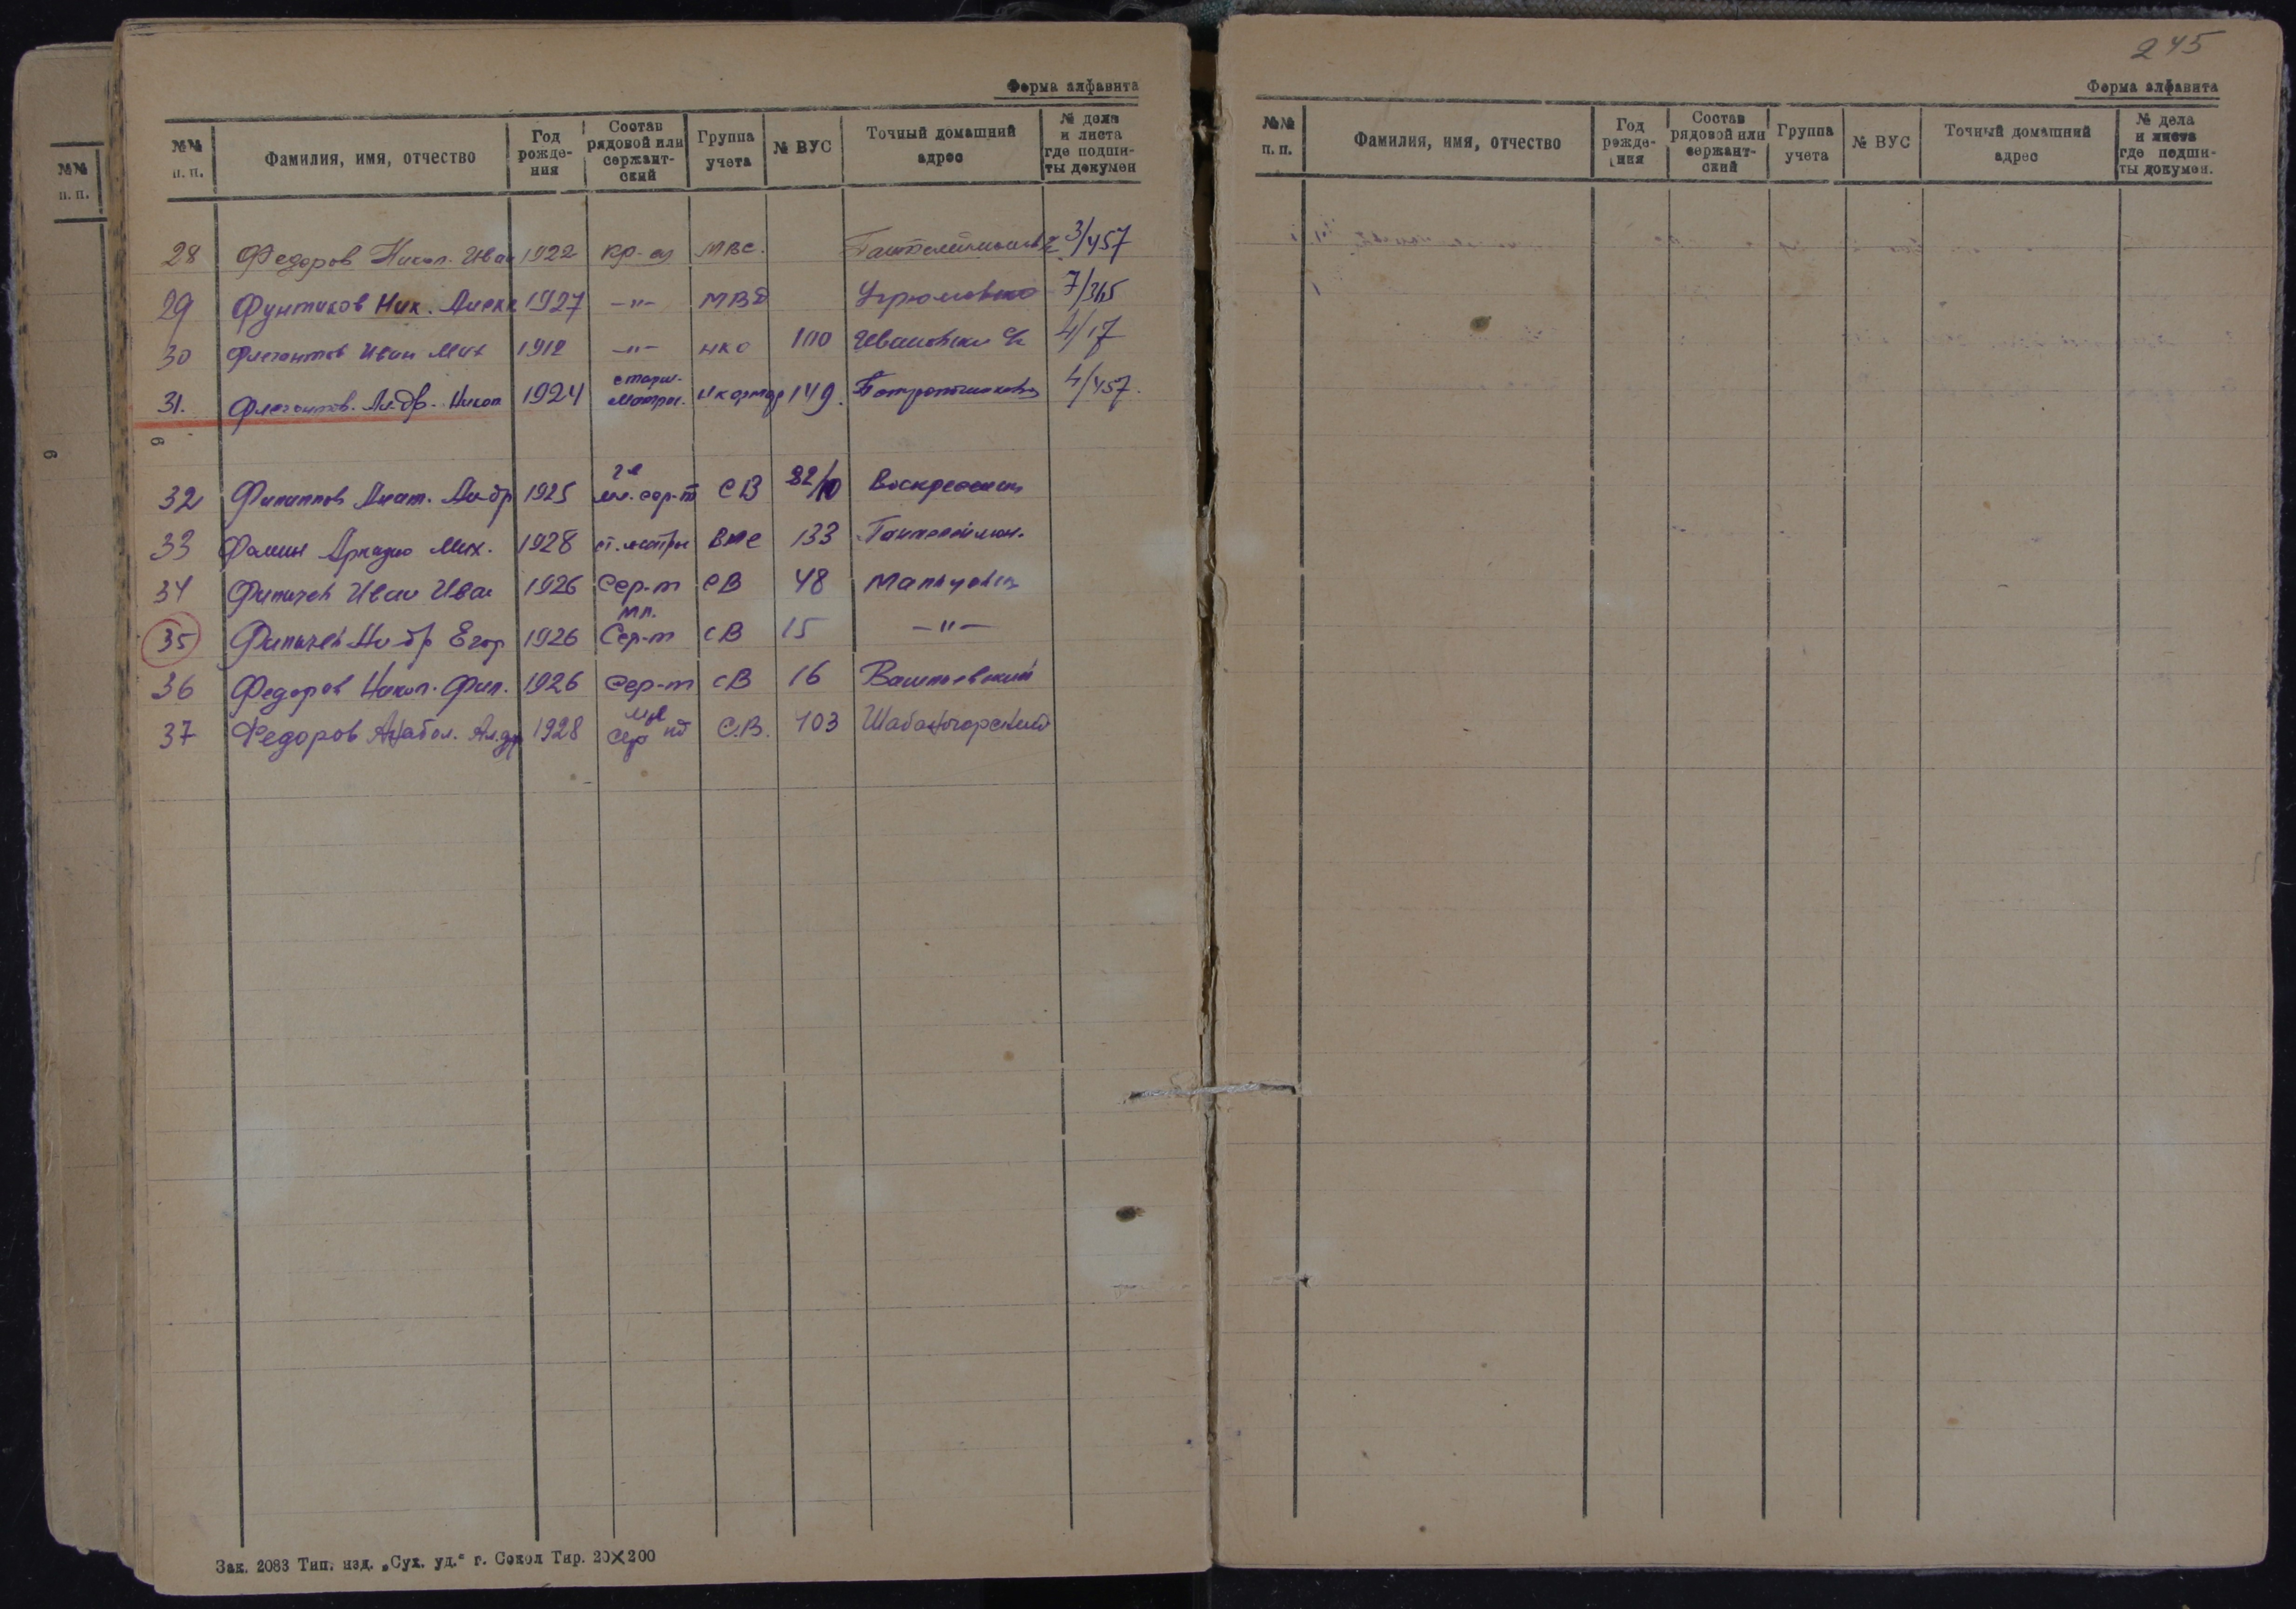 Форма алфавита
№№ п. п. Фамилия, имя, отчество Год рожде- ния Состав рядовой или сержант- ский Группа учета № ВУС Точный домашний адрес № дела и листа где подши- ты докумен
28 Федоров Никол. Иван 1922 кр-ец МВС. 3/457
29 Фунтиков Ник. Алек 1927 —"— МВД Угрюмовско 7/365
30 Флегонтов Иван Мих 1912 —"— НКО 100 4/17
31. Флегонтов. Ал-др. Никол 1924 старш. матрос. 149. 4/457.
32 Филиппов Анат. Ал-др 1925 мл. сер-т СВ 22/10 Воскресенск
33 Фомин Аркадию Мих. 1928 ст. матрос ВМС 133 Пантелеймон.
34 Филичев Иван Иван 1926 Сер-т СВ 48
35 Филичев Ал-др Егор 1926 мл. Сер-т СВ 15 —"—
36 Федоров Никол. Фил. 1926 Сер-т СВ 16
37 Федоров Анатол. Ал.др 1928 мл сер нт С.В. 103 Шабаногорский
Зак. 2083 Тип. изд. „Сух. уд.“ г. Сокол Тир. 20×200
№№ п. п.
245
Форма алфавита
№№ п. п. Фамилия, имя, отчество Год рожде- ния Состав рядовой или сержант- ский Группа учета № ВУС Точный домашний адрес № дела и листа где подши- ты докумен.